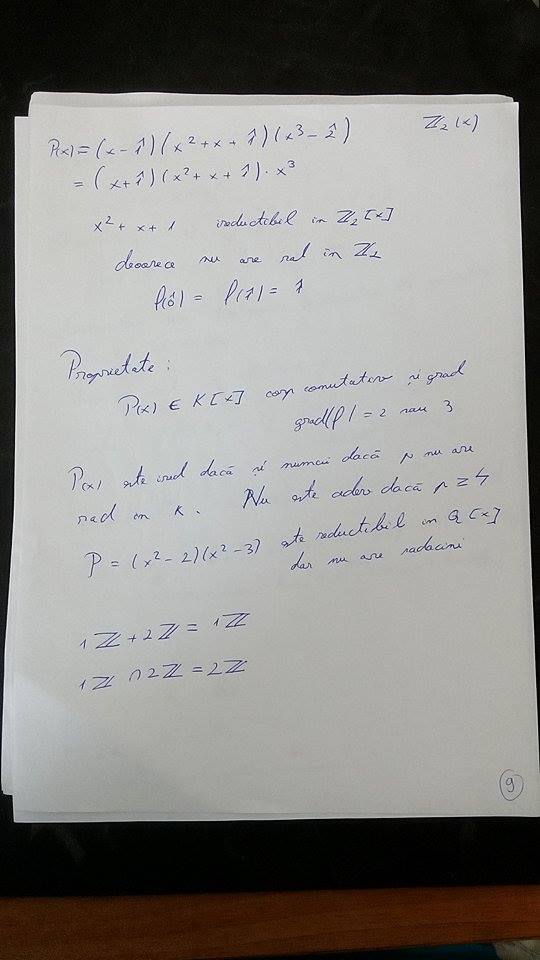 P(x) = (x - 1̂)(x² + x + 1̂)(x³ - 2̂) ℤ₂(x)
= (x + 1̂)(x² + x + 1̂) · x³
x² + x + 1 ireductibil in ℤ₂[x]
deoarece nu are rad in ℤ₂
P(0̂) = P(1̂) = 1̂
Proprietate :
P(x) ∈ K[x] corp comutativ și grad
grad(P) = 2 sau 3
P(x) este ired dacă și numai dacă p nu are
rad in K. Nu este adev dacă p ≥ 4
P = (x² - 2)(x² - 3) este reductibil in Q[x]
dar nu are radacini
1ℤ + 2ℤ = 1ℤ
1ℤ ∩ 2ℤ = 2ℤ
9